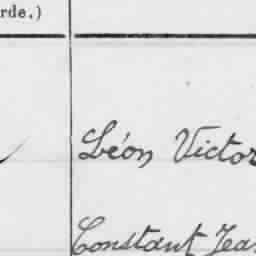 rde.)
Léon Victor
Constant Jea